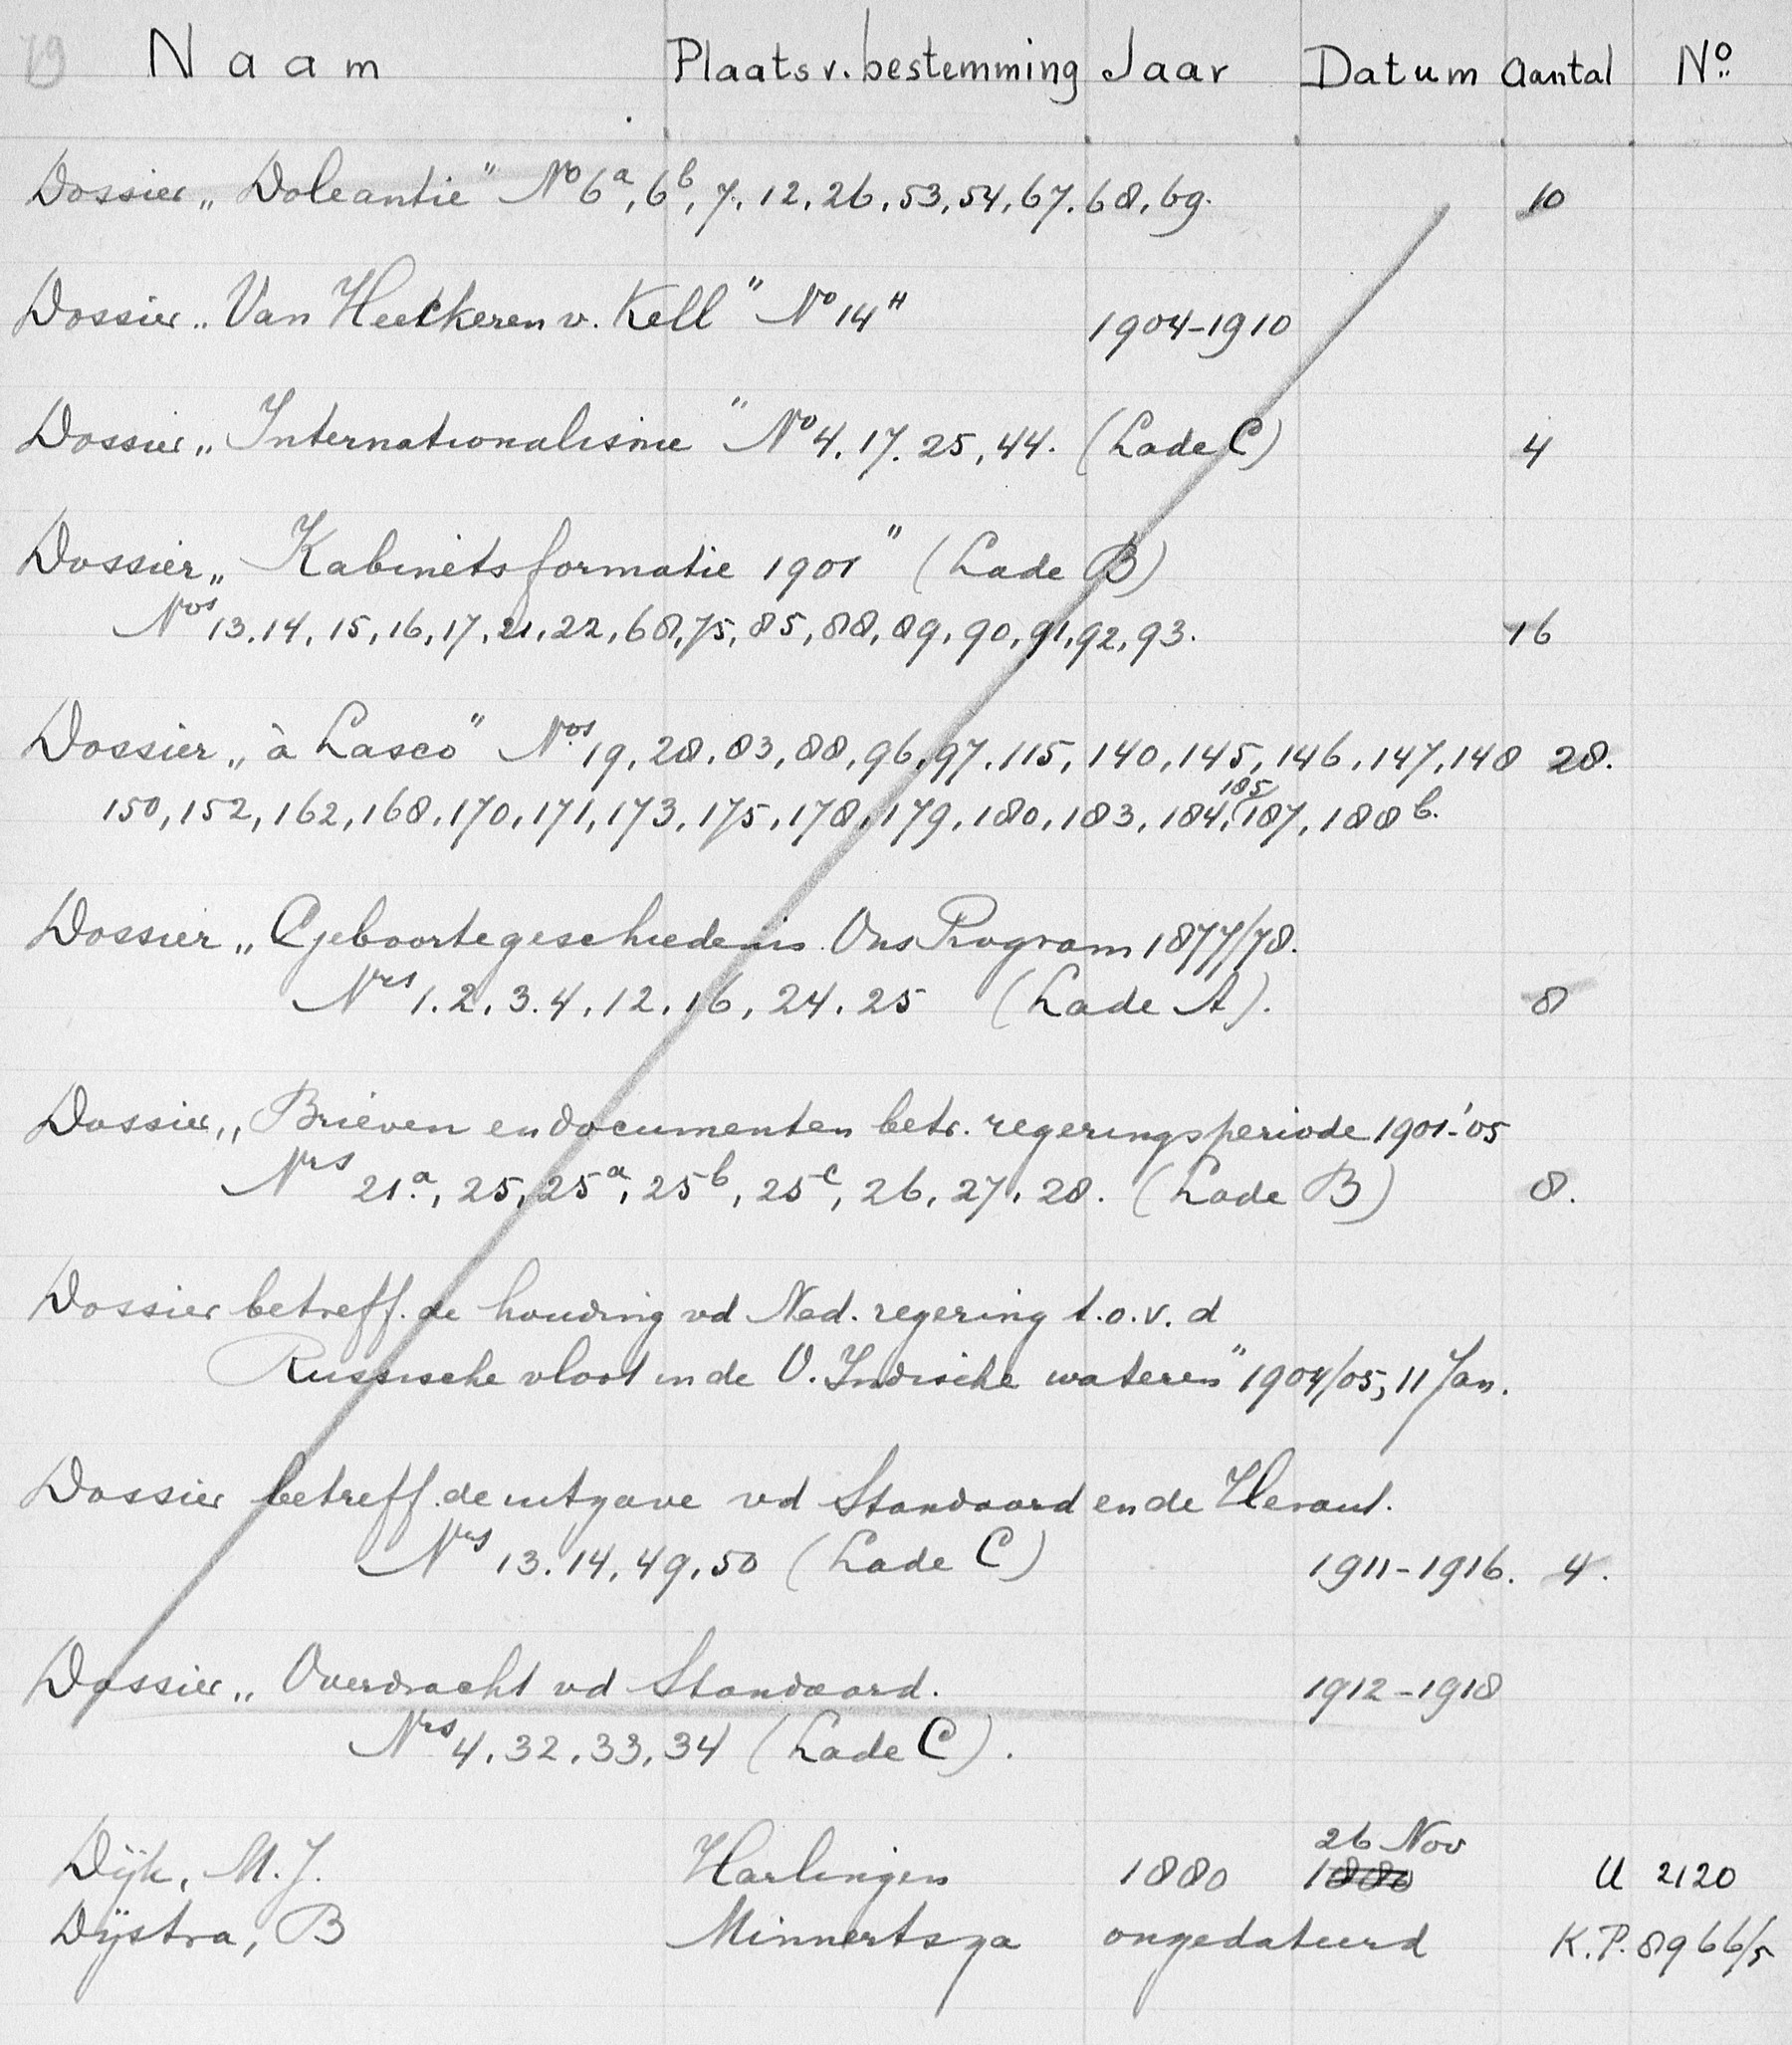 79
Naam Plaats v. bestemming Jaar Datum Aantal No
Dossier „Doleantie" No 6a, 6b, 7, 12, 26, 53, 54, 67, 68, 69. 10
Dossier „Van Heeckeren v. Kell" No 14" 1904-1910
Dossier „Internationalisme" No 4, 17. 25, 44. (Lade C) 4
Dossier „Kabinetsformatie 1901" (Lade B)
Nos 13, 14, 15, 16, 17, 21, 22, 68, 75, 85, 88, 89, 90, 91, 92, 93. 16
Dossier „à Lasco" Nos 19, 28, 83, 88, 96, 97, 115, 140, 145, 146, 147, 148 28.
150, 152, 162, 168, 170, 171, 173, 175, 178, 179, 180, 183, 184, 185, 187, 188b.
Dossier „Geboortegeschiedenis Ons Program 1877/78.
Nrs 1. 2. 3. 4, 12, 16, 24, 25 (Lade A). 8
Dossier „Brieven en documenten betr. regeringsperiode 1901-'05
Nrs 21a, 25, 25a, 25b, 25c, 26, 27, 28. (Lade B) 8.
Dossier betreff. de houding vd Ned. regering t.o.v. d
Russische vloot in de O. Indische wateren" 1904/05, 11 Jan.
Dossier betreff. de uitgave vd Standaard en de Heraut.
Nrs 13. 14, 49, 50 (Lade C) 1911-1916. 4.
Dossier „Overdracht vd Standaard. 1912-1918
Nrs 4, 32, 33, 34 (Lade C).
26 Nov
Dijk, M. J. Harlingen 1880 1880 U 2120
Dijstra, B Minnertsga ongedateerd K.P. 8966/5